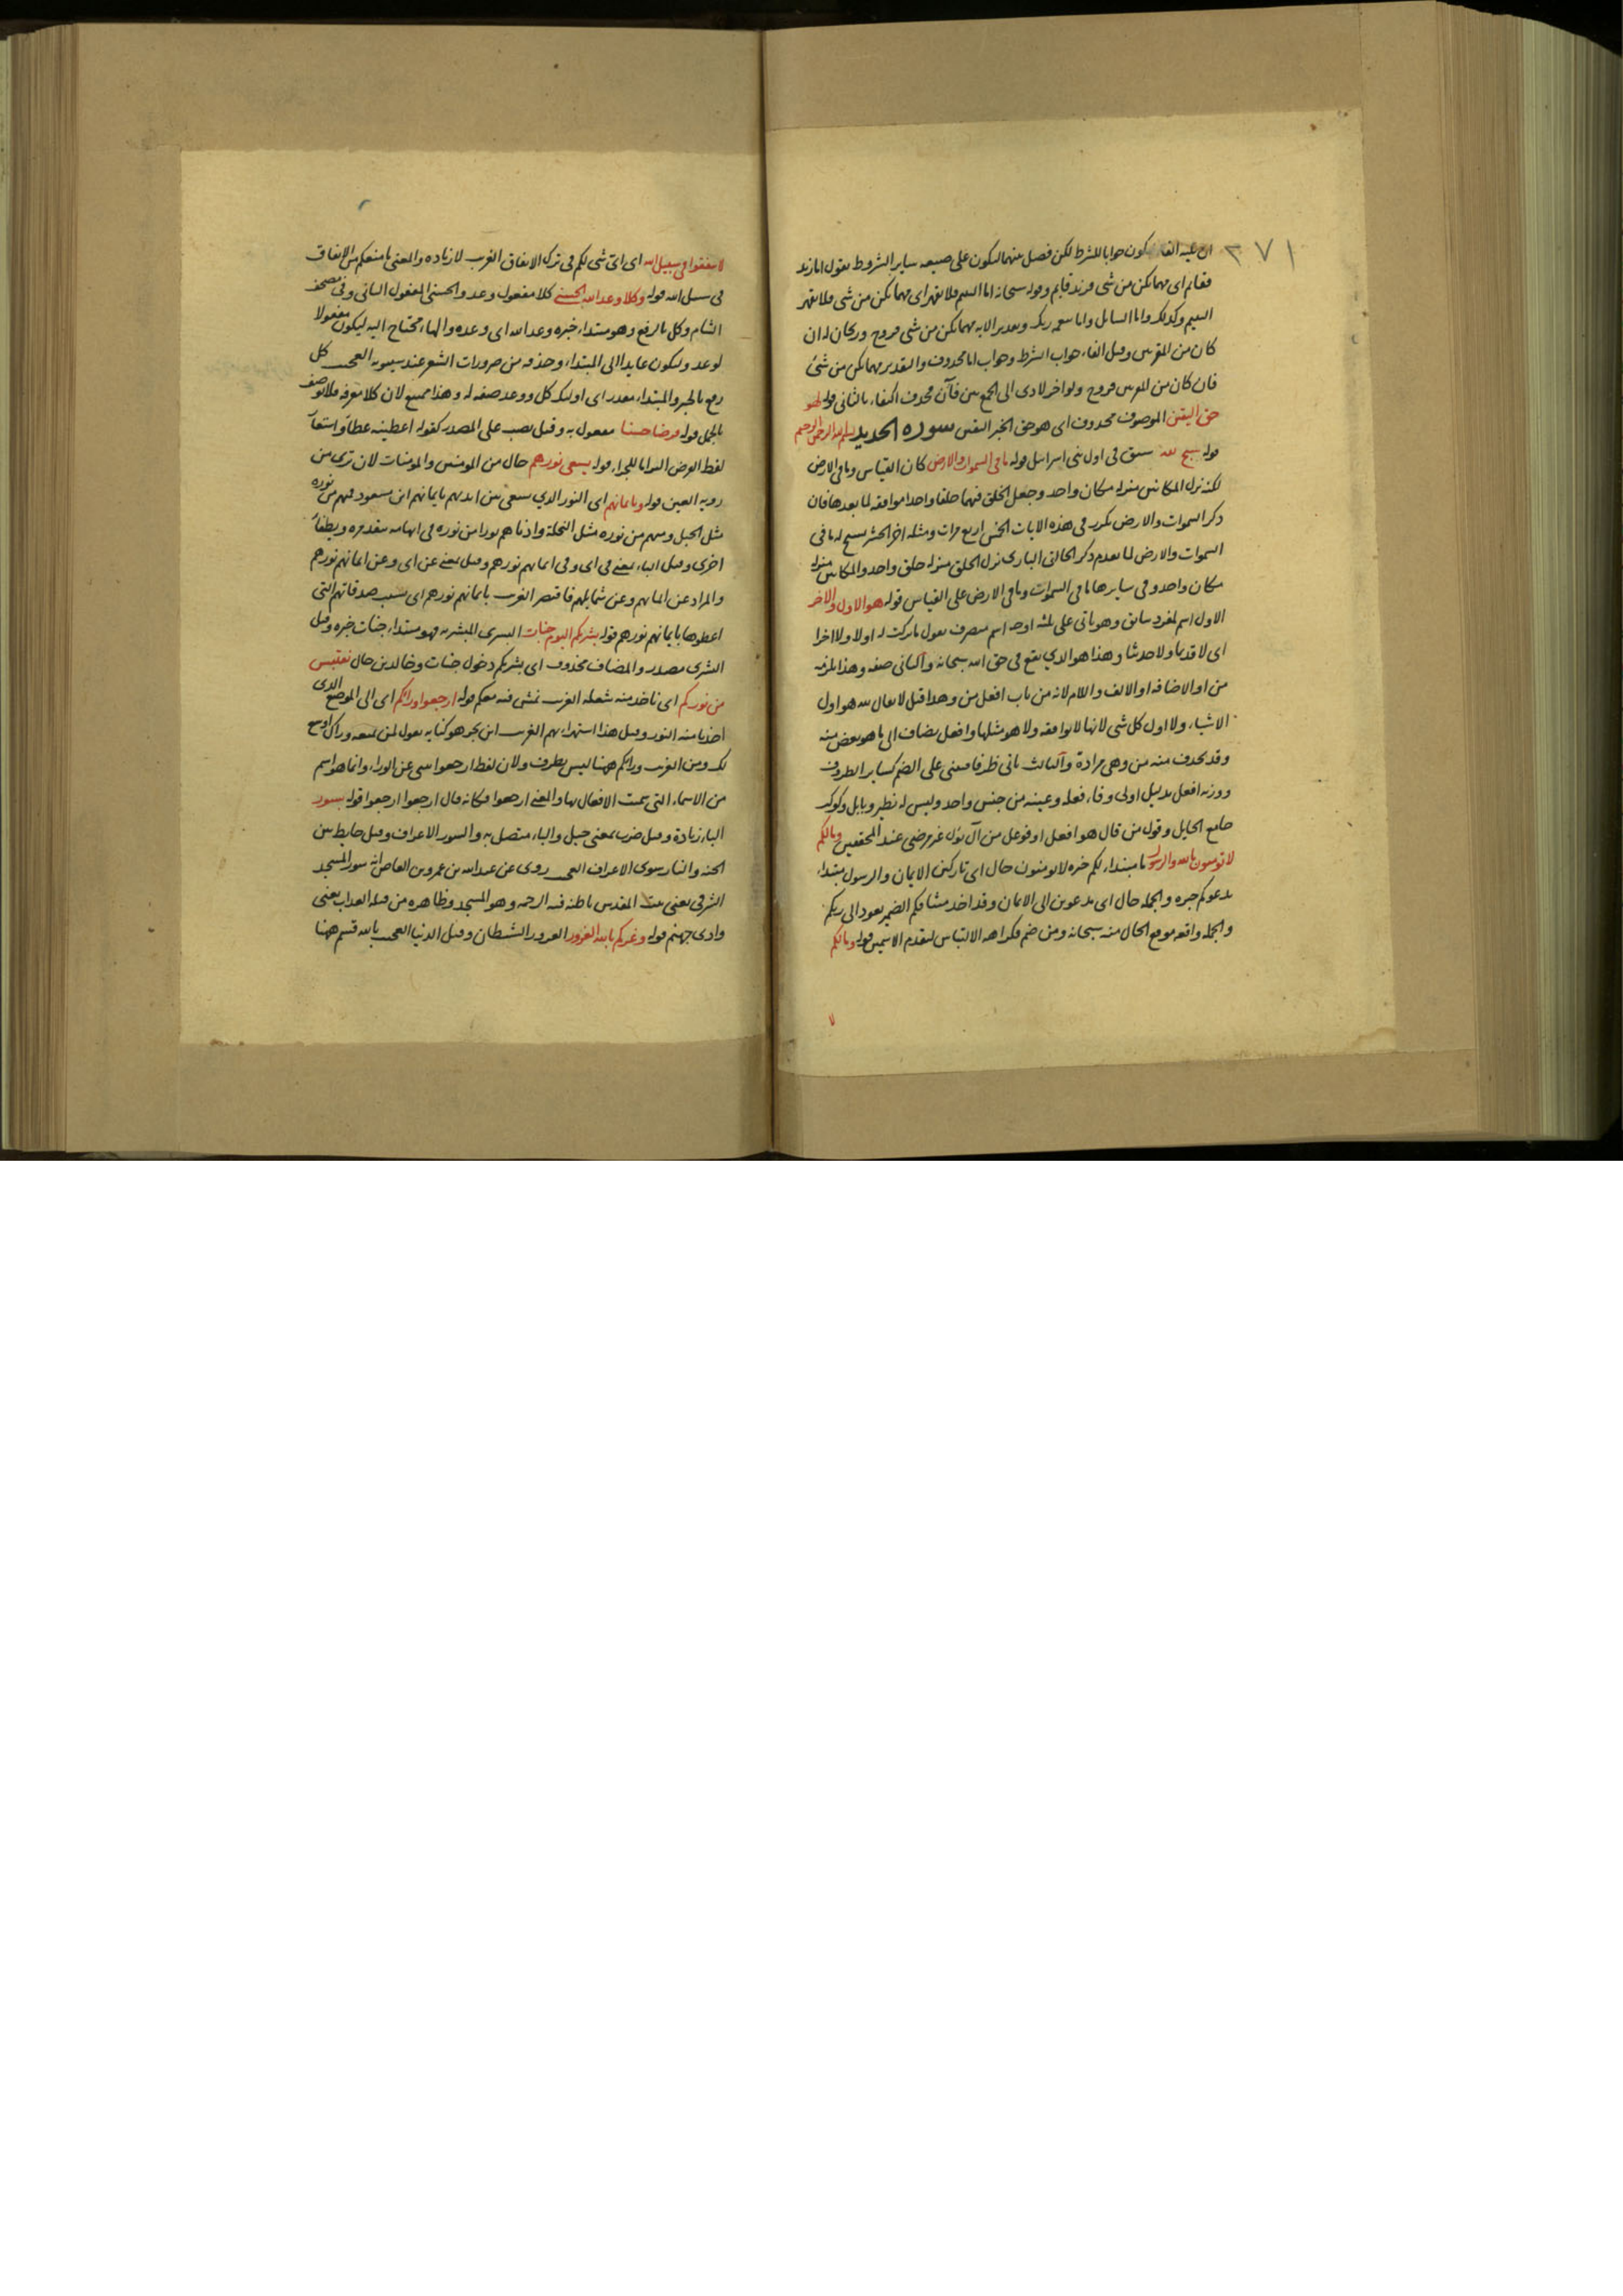 ان عليه الفا يكون جوابا للشرط لكن فصل بينهما ليكون على صيغه ساير الشروط تقول اما زيد
فقايم اى مهما يكن من شى فزيد قايم وقوله سبحانه اما اليتيم فلا تقهر اى مهما يكن من شى فلا تقهر
اليتيم وكذلك واما السايل واما بنعمه ربك وتقدير الايه مهما يكن من شى فروح وريحان له ان
كان من المقربين وقيل الفاء جواب الشرط وجواب اما محذوف والتقدير مهما يكن من شئ
فان كان من المقربين فروح ولو اخر لادى الى الجمع بين فآن فحذف اكتفاء بالثانى قوله لهو
حق اليقين الموصوف محذوف اى هو حق الخبر اليقين سورة الحديد بسم الله الرحمن الرحيم
قوله سبح لله سبق فى اول بنى اسرائيل قوله ما فى السموات والارض كان القياس وما فى الارض
لكنه نزل المكانين منزله مكان واحد وجعل الخلق فيهما خلقا واحدا موافقه لما بعدها فان
ذكر السموات والارض تكرر فى هذه الايات الخمس اربع مرات ومثله اخر الحشر يسبح له ما فى
السموات والارض لما تقدم ذكر الخالق البارى نزل الخلق منزله خلق واحد والمكانين منزله
مكان واحد وفى سايرها ما فى السموات وما فى الارض على القياس قوله هو الاول والاخر
الاول اسم لمفرد سابق وهو ياتى على ثلثه اوجه اسم منصرف تقول ما تركت له اولا ولا اخرا
اى لا قديما ولا حديثا وهذا هو الذي يقع فى حق الله سبحانه والثانى صفه وهذا يلزمه
من او الاضافه او الالف واللام لانه من باب افعل من وهذا قيل لا يقال لله هو اول
الاشياء ولا اول كل شى لانها لا توافقه ولا هو مثلها وافعل يضاف الى ما هو بعض منه
وقد يحذف منه من وهى مرادة والثالث ياتى ظرفا فيبنى على الضم كساير الظروف
ووزنه افعل بدليل اولى وفاء فعله وعينه من جنس واحد وليس له نظير وبابل وكوكب
وقول من قال هو افعل او فوعل من آل يؤل غير مرضى عند المحققين ومالكم
لا تومنون بالله والرسول ما مبتداء لكم خبره لا تومنون حال اى تاركين الايمان والرسول مبتداء
يدعوكم خبره والجمله حال اى مدعوين الى الايمان وقد اخذ ميثاقكم الضمير يعود الى ربكم
والجمله واقعه موقع الحال منه سبحانه ومن ضم فكراهه الالتباس لتقدم الاسمين قوله ومالكم
لا
لا تنفقوا فى سبيل الله اى اى شى لكم فى ترك الانفاق الغريب لا زياده والمعنى ما منعكم من الانفاق
فى سبيل الله قوله وكلا وعد الله الحسنى كلا مفعول وعد والحسنى المفعول الثانى وفى مصحف
الشام وكل بالرفع وهو مبتداء خبره وعد الله اى وعده والهاء محتاج اليه ليكون مفعولا
لوعد وليكون عايدا الى المبتداء وحذفه من ضرورات الشعر عند سيبويه العجيب كل
رفع بالخبر والمبتداء مقدر اى اولئك كل ووعد صفه له وهذا ممتنع لان كلا معرفه فلا توصف
بالجمل قوله قرضا حسنا مفعول به وقيل نصب على المصدر كقوله اعطيته عطاء واستعار
لفظ القرض للجزاء قوله يسعى نورهم حال من المومنين والمومنات لان ترى من
رويه العين قوله وبايمانهم اى النور الذي يسعى بين ايديهم بايمانهم ابن مسعود فمنهم من نوره
مثل الجبل ومنهم من نوره مثل النخلة وادناهم نورا من نوره فى ابهامه يتقد مره ويطفأ
اخرى وقيل الباء بمعنى فى اى وفى ايمانهم نورهم وقيل بمعنى عن اى وعن ايمانهم نورهم
والمراد عن ايمانهم وعن شمايلهم فاقتصر الغريب بايمانهم نورهم اى بسبب صدقاتهم التى
اعطوها بايمانهم نورهم قوله بشريكم اليوم جنات البشرى المبشر به فهو مبتداء جنات خبره وقيل
البشرى مصدر والمضاف محذوف اى بشريكم دخول جنات وخالدين حال نقتبس
من نوركم اى ناخذ منه شعله الغريب نمشى فيه معكم قوله ارجعوا وراكم اى الى الموضع الذى
اخذنا منه النور وقيل هذا استهزاء بهم الغريب ابن بحر هو كنايه تقول لمن تمنعه وراك اوسع
لك ومن الغريب وراكم ههنا ليس بظرف ولان لفظ ارجعوا ينبى عن الوراء وانما هو اسم
من الاسماء التى سميت الافعال بها والمعنى ارجعوا فكانه قال ارجعوا ارجعوا قوله بسور
الباء زيادة وقيل ضرب بمعنى حيل والباء متصل به والسور الاعراف وقيل حايط بين
الجنه والنار سوى الاعراف العجيب روى عن عبد الله بن عمرو بن العاص انه سور المسجد
الشرقى يعنى بيت المقدس باطنه فيه الرحمه وهو المسجد وظاهره من قبله العذاب يعنى
وادى جهنم قوله وغركم بالله الغرور الغرور الشيطان وقيل الدنيا العجيب بالله قسم ههنا